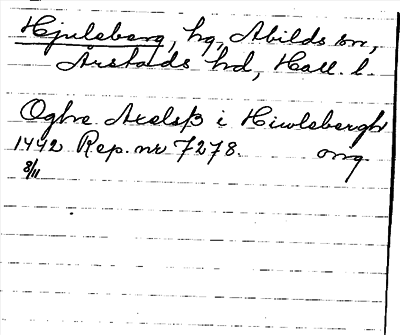 Hjulsberg, hg, Abilds sn,
Årstads hd, Hall. l.
Oghe Axelsß i Hiwlsbergh
1492 Rep. nr 7278. orig
8/11